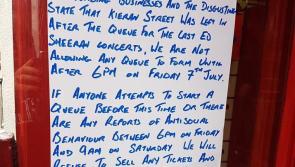 BUSINESSES AND THE DISGUSTING
STATE THAT KIERAN STREET WAS LEFT IN
AFTER THE QUEUE FOR THE LAST ED
SHEERAN CONCERTS, WE ARE NOT
ALLOWING ANY QUEUE TO FORM UNTIL
AFTER 6PM ON FRIDAY 7TH JULY.
IF ANYONE ATTEMPTS TO START A
QUEUE BEFORE THIS TIME OR THERE
ARE ANY REPORTS OF ANTISOCIAL
BEHAVIOUR BETWEEN 6PM ON FRIDAY
AND 9AM ON SATURDAY WE WILL
REFUSE TO SELL ANY TICKETS AND